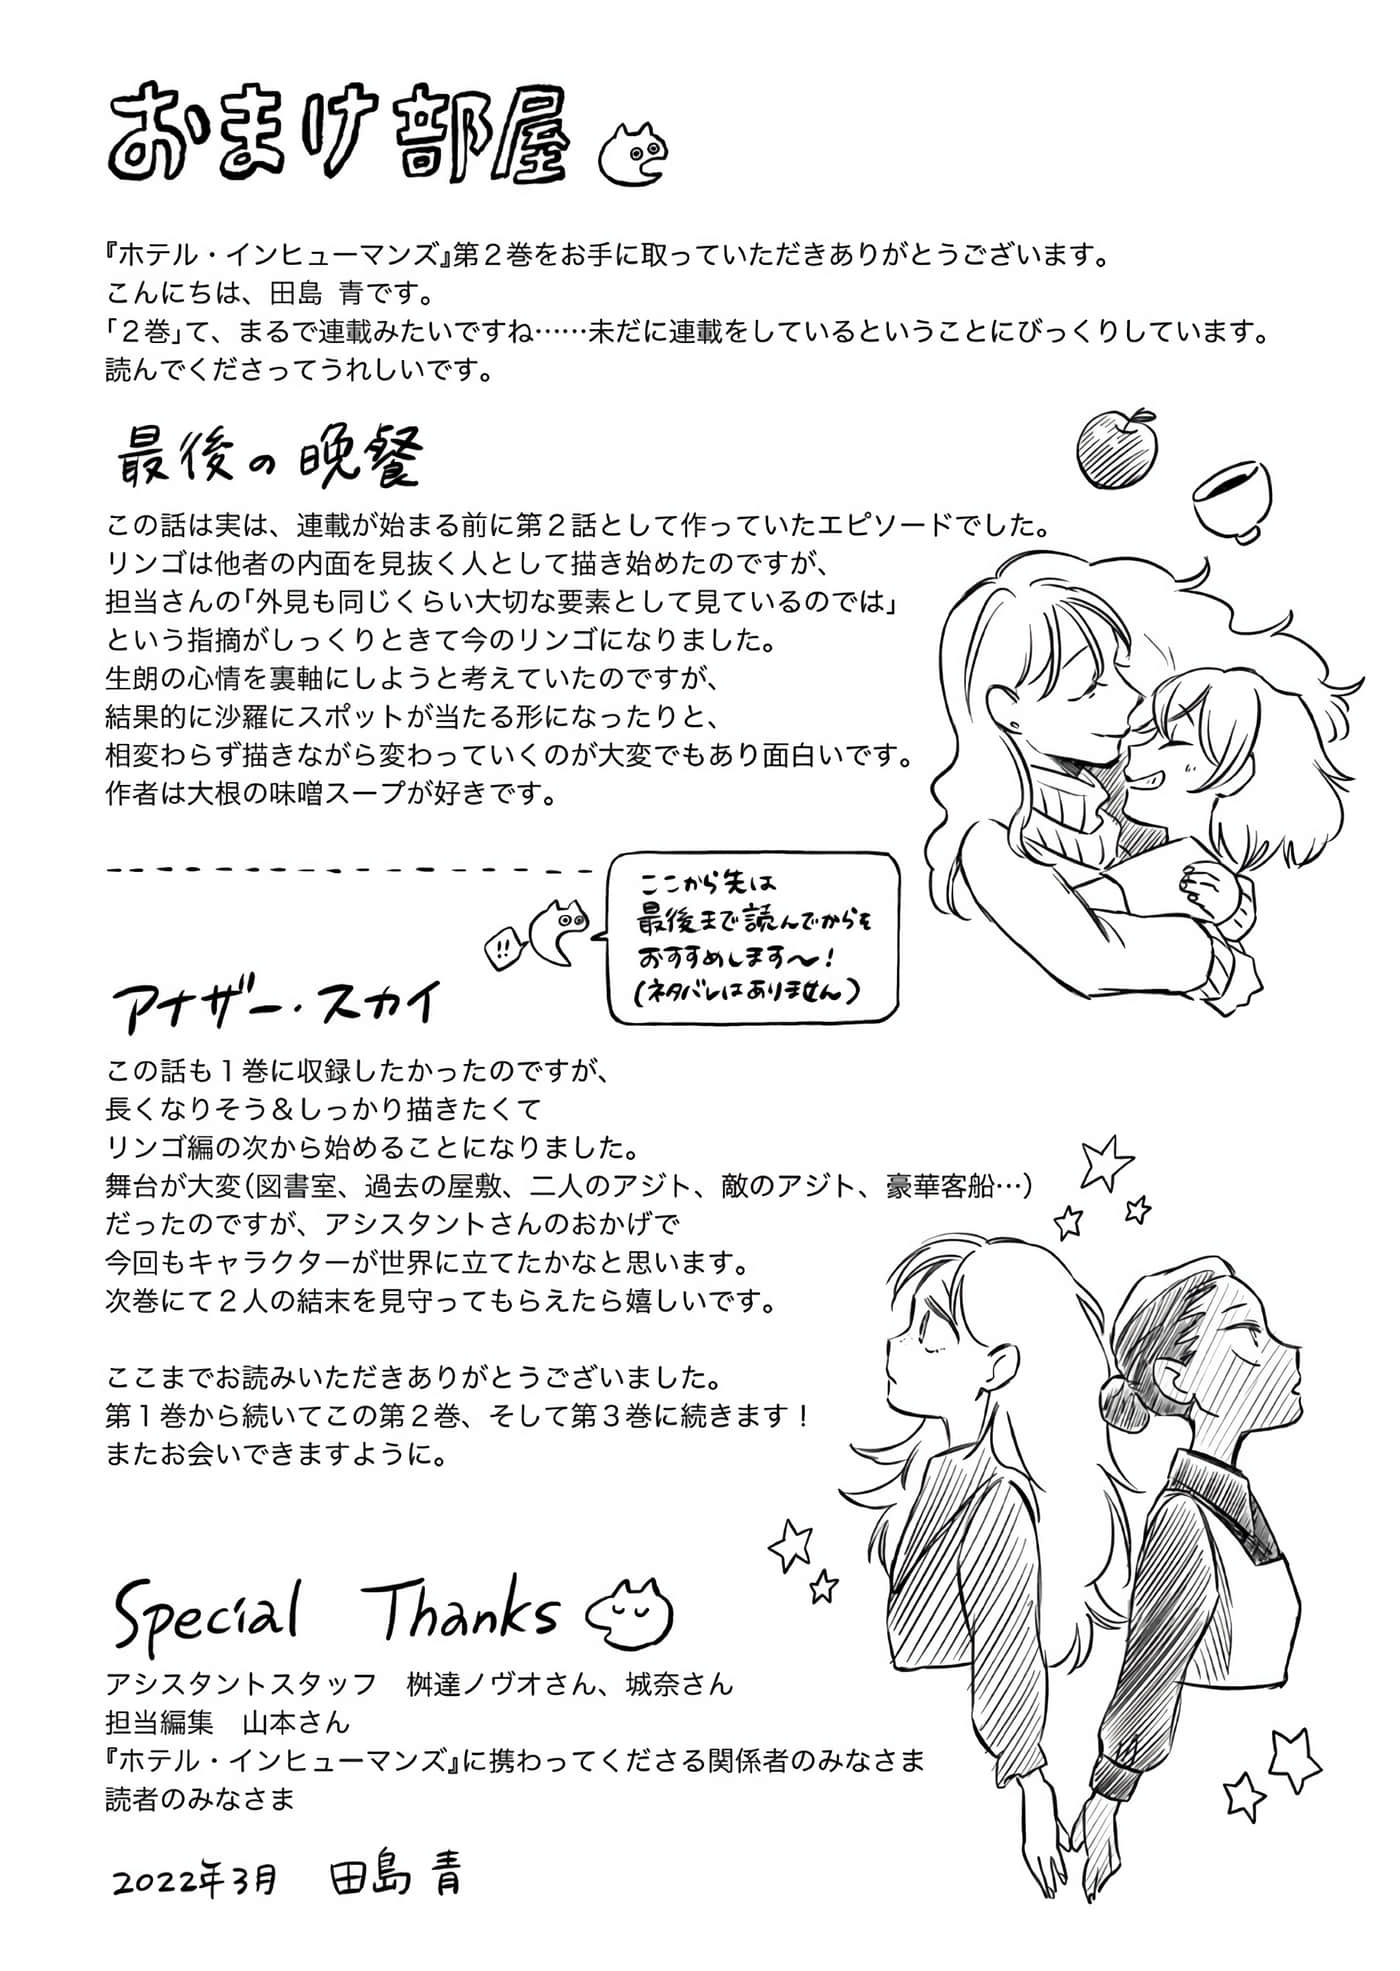 おまけ部屋
『ホテル・インヒューマンズ』第２巻をお手に取っていただきありがとうございます。
こんにちは、田島 青です。
「２巻」て、まるで連載みたいですね……未だに連載をしているということにびっくりしています。
読んでくださってうれしいです。
最後の晩餐
この話は実は、連載が始まる前に第２話として作っていたエピソードでした。
リンゴは他者の内面を見抜く人として描き始めたのですが、
担当さんの「外見も同じくらい大切な要素として見ているのでは」
という指摘がしっくりときて今のリンゴになりました。
生朗の心情を裏軸にしようと考えていたのですが、
結果的に沙羅にスポットが当たる形になったりと、
相変わらず描きながら変わっていくのが大変でもあり面白いです。
作者は大根の味噌スープが好きです。
ここから先は
最後まで読んでからを
おすすめします〜！
（ネタバレはありません）
!!
アナザー・スカイ
この話も１巻に収録したかったのですが、
長くなりそう＆しっかり描きたくて
リンゴ編の次から始めることになりました。
舞台が大変（図書室、過去の屋敷、二人のアジト、敵のアジト、豪華客船…）
だったのですが、アシスタントさんのおかげで
今回もキャラクターが世界に立てたかなと思います。
次巻にて２人の結末を見守ってもらえたら嬉しいです。
ここまでお読みいただきありがとうございました。
第１巻から続いてこの第２巻、そして第３巻に続きます！
またお会いできますように。
Special Thanks
アシスタントスタッフ　桝達ノヴオさん、城奈さん
担当編集　山本さん
『ホテル・インヒューマンズ』に携わってくださる関係者のみなさま
読者のみなさま
2022年3月　田島 青